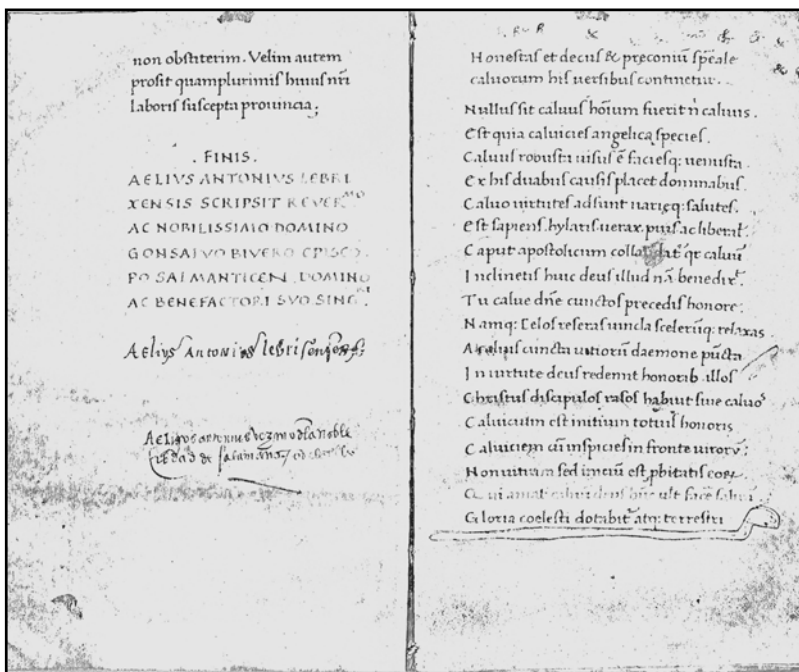 non obstiterim. Velim autem
prosit quamplurimis huius nr̃i
laboris suscepta prouincia;
. FINIS .
AELIVS ANTONIVS LEBRI
XENSIS SCRIPSIT REVER.MO
AC NOBILISSIMO DOMINO
GONSALVO BIVERO EPISCO
PO SALMANTICEN. DOMINO
AC BENEFACTORI SVO SING.
Aelius Antonius
noble
de
Honestas et decus & preconiũ sp̃eale
caluorum his uersibus continetur.
Nullus sit caluus hoĩum fuerit ñ caluus.
Est quia caluicies angelica species.
Caluus robustus uisus ẽ faciesq: uenusta.
Ex his duabus causis placet dominabus.
Caluo uirtutes adsunt uarieq: salutes.
Est sapiens. hylaris. uerax. pius ac liberal̃.
Caput apostolicum
Inclinetis huic deus illud nã
Tu calue dñe cunctos precedis honore:
Namq: Celos reseras uincla scelerũq: relaxas
cuncta uitiorũ daemone
In uirtute deus redemit honorib. illos
Christus discipulos rasos habuit siue caluos
Caluicium est initium totius honoris
Caluiciem cũ inspicies in fronte uirorũ:
Non uitium sed iniciũ est, p̱bitatis eorum
Qui amat
Gloria coelesti dotabit̃ atq: terrestri